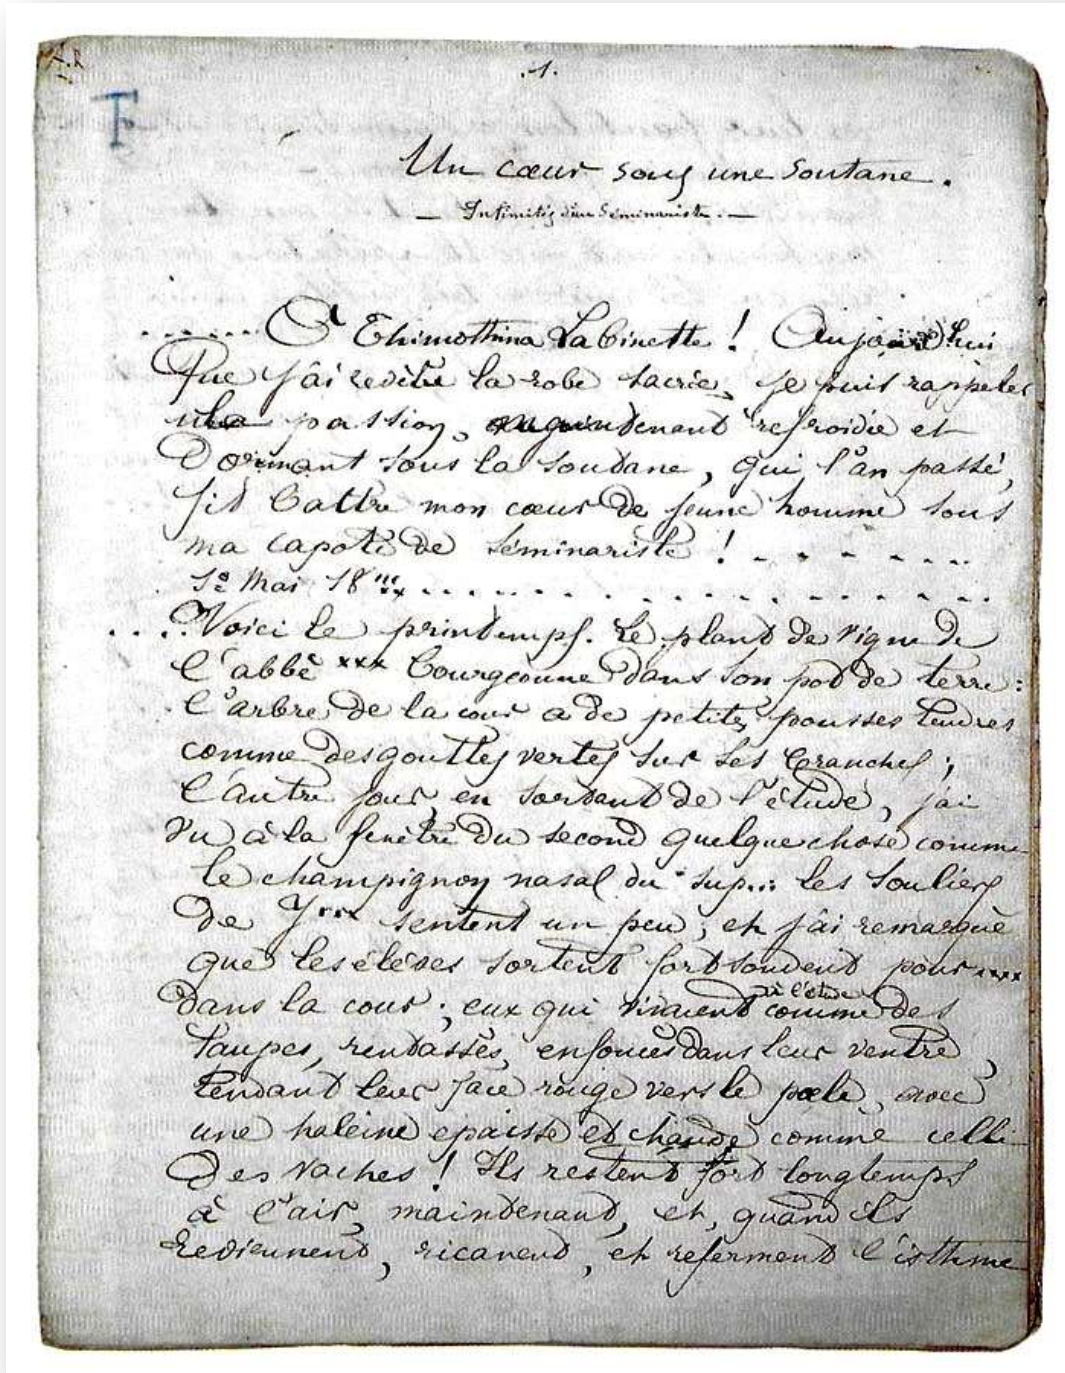 .1.
F
Un cœur sous une Soutane.
— Intimités d'un Séminariste. —
...... O Thimothina Labinette ! Aujourd'hui
Que j'ai revêtu la robe sacrée, je puis rappeler
la passion, maintenant refroidie et
Dormant sous la soutane, qui l'an passé,
fit battre mon cœur de jeune homme sous
ma capote de séminariste ! . . . . . .
1er Mai 18 . . . . . . . . . . . . . . .
....Voici le printemps. Le plant de vigne de
l'abbé *** bourgeonne dans son pot de terre :
l'arbre de la cour a de petites pousses tendres
comme des gouttes vertes sur ses branches ;
l'autre jour, en sortant de l'étude, j'ai
vu à la fenêtre du second quelque chose comme
le champignon nasal du sup... les souliers
de J*** sentent un peu ; et j'ai remarqué
que les élèves sortent fort souvent pour ****
à l'étude
dans la cour ; eux qui vivaient comme des
taupes, rentassés, enfoncés dans leur ventre,
tendant leur face rouge vers le poële, avec
une haleine epaisse et chaude comme celle
des vaches ! Ils restent fort longtemps
à l'air, maintenant, et, quand ils
reviennent, ricanent, et referment l'isthme